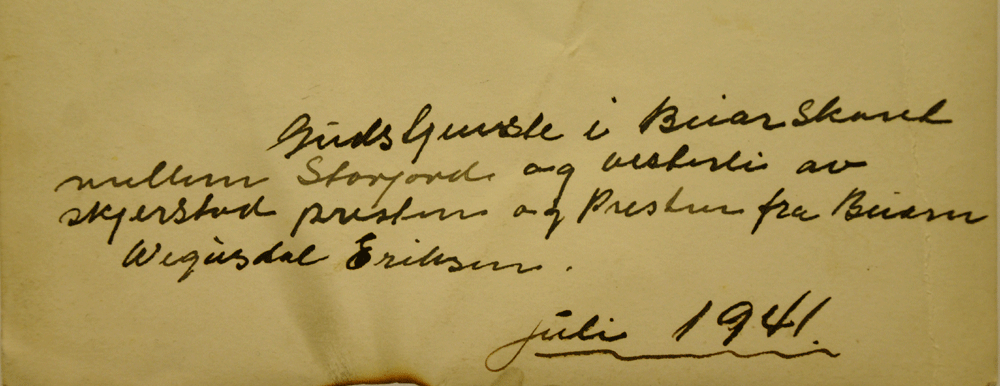 Gudstjenste i Beiarskaret
mellem Storjord og vesterli av
skjerstad presten og Presten fra Beiarn
Wegusdal Eriksen.
juli 1941.